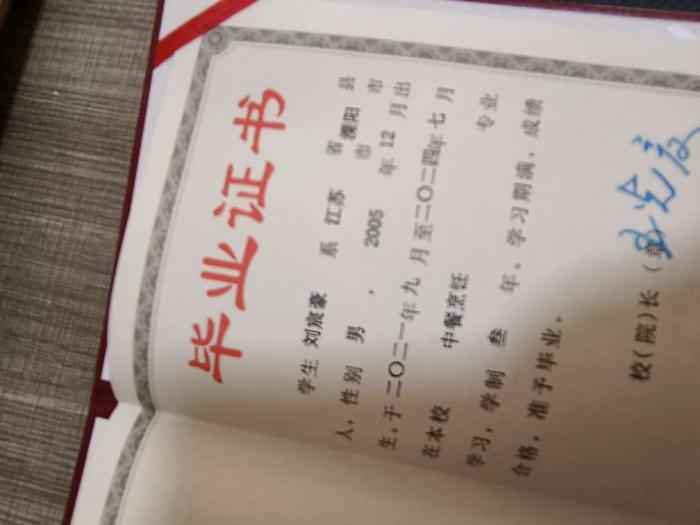 毕业证书
学生 刘宸豪 系 江苏 省 溧阳 县
市 市
人，性别 男 ， 2005 年 12 月出
生。于二〇二一年九月至二〇二四年七月
在本校 中餐烹饪 专业
学习，学制 叁 年。学习期满，成绩
合格，准予毕业。
校（院）长（章）